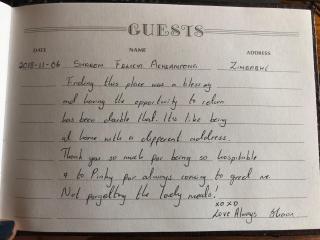 GUESTS
DATE NAME ADDRESS
2018-11-06 SHARON FELICIA ZIMBABWE
Finding this place was a blessing
and having the opportunity to return
has been double that. Its like being
at home with a different address.
Thank you so much for being so hospitable
& to Pinky for always coming to greet me
Not forgetting the lovely meals!
xoxo
Love Always Sharon